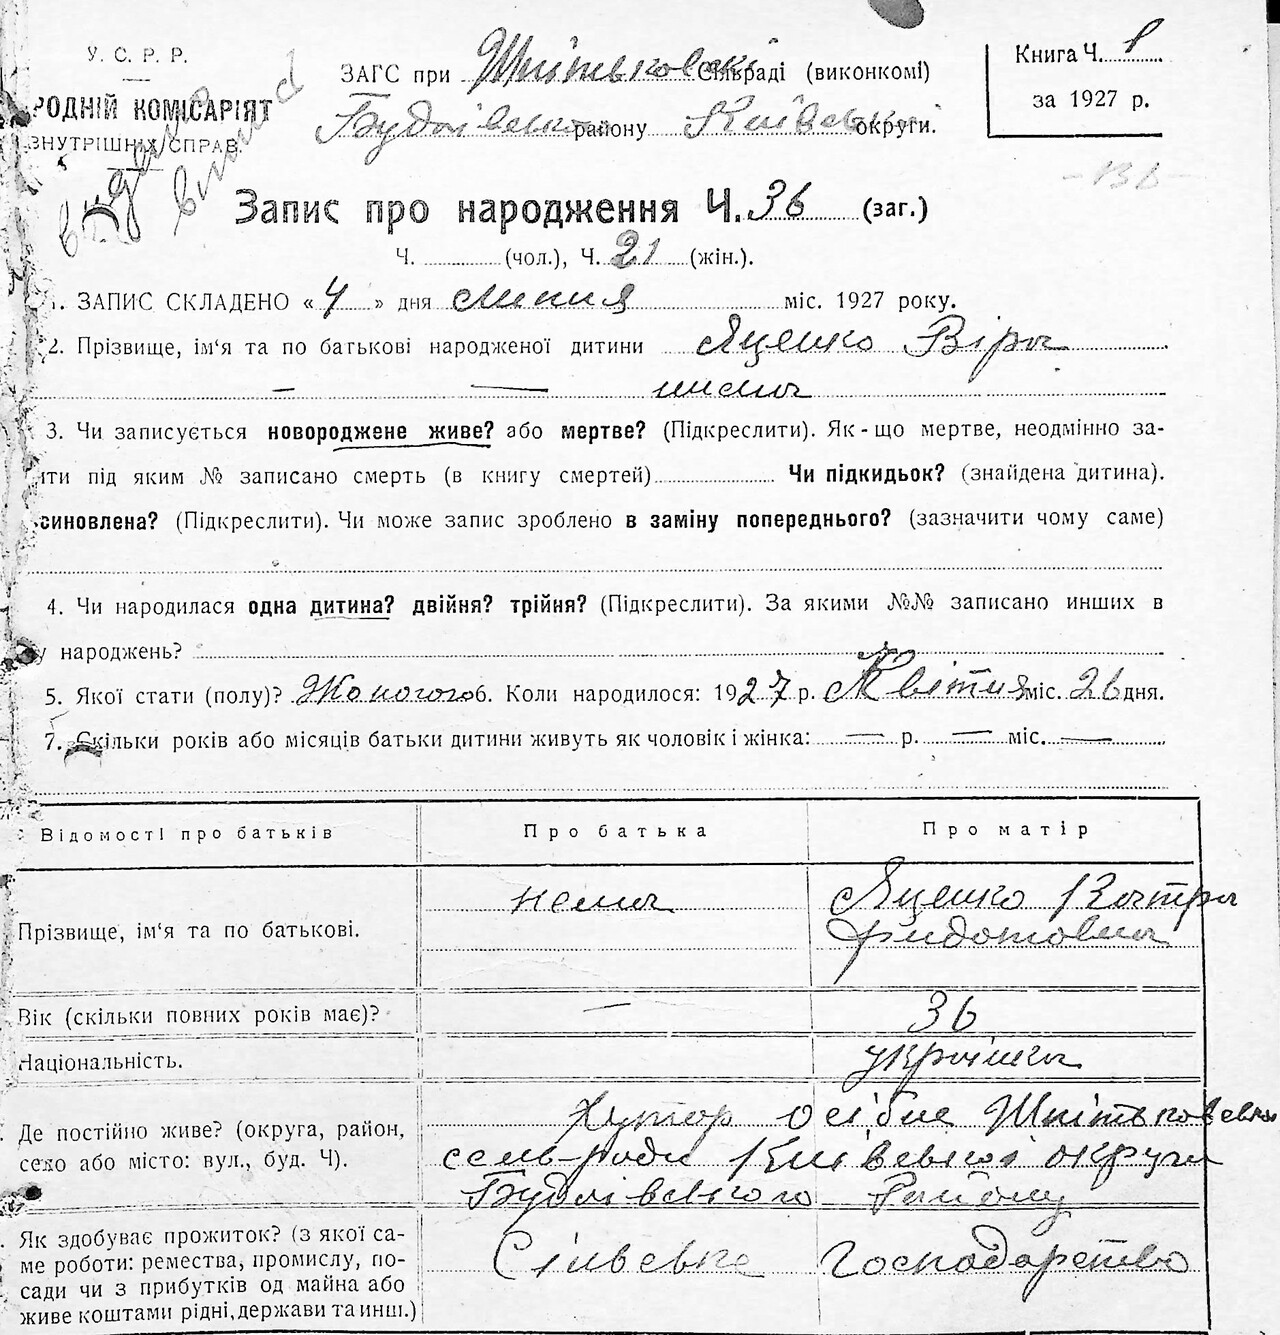 У. С. Р. Р.
РОДНІЙ КОМІСАРІЯТ
ВНУТРІШНІХ СПРАВ.
ЗАГС при Шпітьковскі сільраді (виконкомі)
Будаївськ району Київської округи.
Книга Ч. 1
за 1927 р.
видано
виписа
136
Запис про народження Ч. 36 (заг.)
Ч. (чол.), Ч. 21 (жін.).
1. ЗАПИС СКЛАДЕНО «4» дня липня міс. 1927 року.
2. Прізвище, ім‘я та по батькові народженої дитини Яценко Віра
— — нема
3. Чи записується новороджене живе? або мертве? (Підкреслити). Як-що мертве, неодмінно за-
ити під яким № записано смерть (в книгу смертей) Чи підкидьок? (знайдена дитина).
синовлена? (Підкреслити). Чи може запис зроблено в заміну попереднього? (зазначити чому саме)
4. Чи народилася одна дитина? двійня? трійня? (Підкреслити). За якими №№ записано инших в
у народжень?
5. Якої стати (полу)? Жоночого 6. Коли народилося: 1927 р. Квітня міс. 26 дня.
7. Скільки років або місяців батьки дитини живуть як чоловік і жінка: — р. — міс. —
Відомості про батьків Про батька Про матір
Прізвище, ім‘я та по батькові. нема Яценко Катря
Федотовна
Вік (скільки повних років має)? — 36
Національність. українка
Де постійно живе? (округа, район, село або місто: вул., буд. Ч). Хутор Осібне Шпітьковскі
сель-ради Київської округи
Будаївського Району
Як здобуває прожиток? (з якої са-
ме роботи: ремества, промислу, по-
сади чи з прибутків од майна або
живе коштами рідні, держави та инш.)
Сільське Господарство